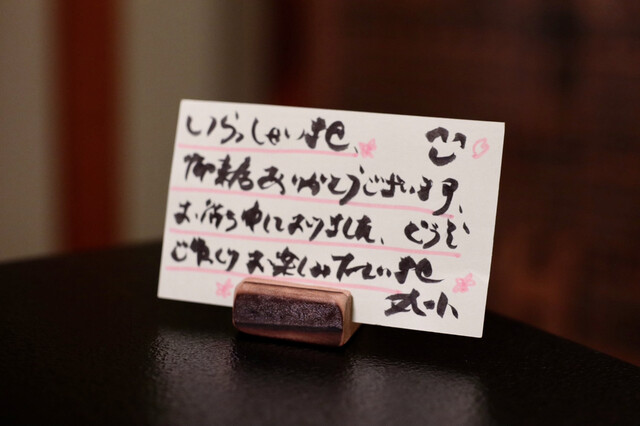 いらっしゃいませ、
御来店ありがとうございます、
お待ち申しておりました、どうぞ
ごゆっくりお楽しみ下さいませ